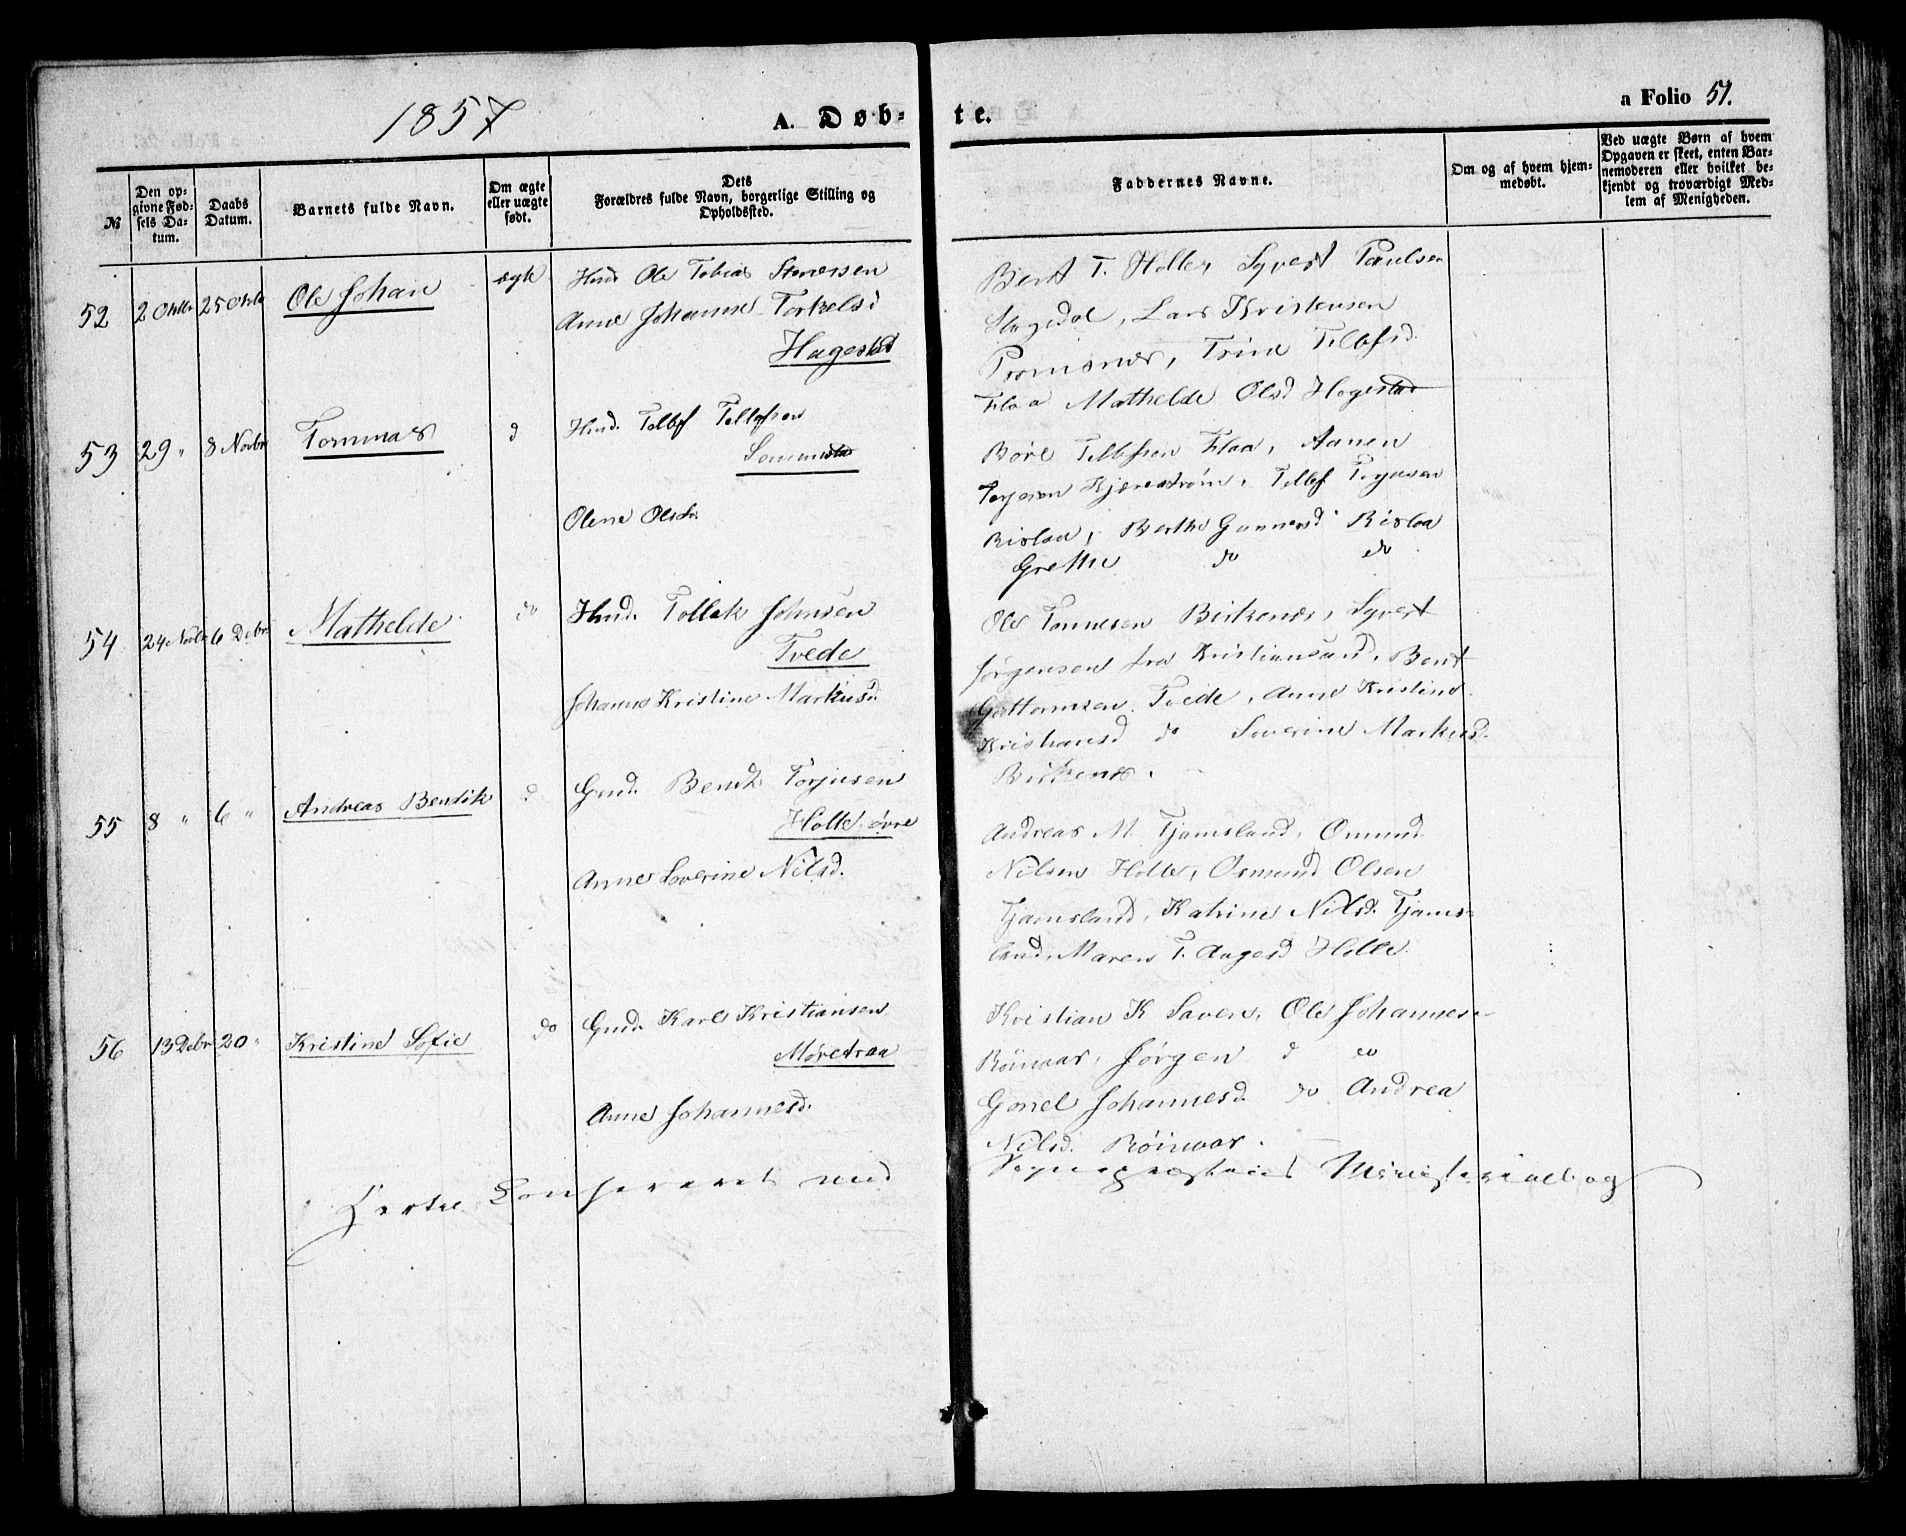 1857
A. Døb-
te.
a Folio 51.
№
Den op-
givne Fød-
sels Da-
tum.
Daabs
Datum.
Barnets fulde Navn.
Om ægte
eller uægte
født.
Dets
Forældres fulde Navn, borgerlige Stilling og
Opholdssted.
Faddernes Navne.
Om og af hvem hjem-
medøbt.
Ved uægte Børn af hvem
Opgaven er skeet, enten Bar-
nemoderen eller hvilket be-
kjendt og troværdigt Med-
lem af Menigheden.
52 2 Oktbr 25 Oktb Ole Johan ægte Hmd Ole Tobias
Anne Johanne Torkelsd
Hagestad
Bent T. Holle, Syvert Paulsen
Lars Kristensen
Trine Tellefsd.
Flaa Mathelde Olsd Hagestad
53 29 " 8 Novbr Tommas d Hmd. Tellef Tellefsen
Olene Olsdr.
Børe Tellefsen Flaa, Aanen
Terjesen Kjærestrøm, Tellef Terjesen
Rislaa, Berthe Gunnersd Rislaa
Grethe do do
54 24 Novbr 6 Debr. Mathelde do Hmd. Tollak Johnsen
Tvede
Johanne Kristine Markusd.
Ole Tonnesen Birkenes, Syvert
Jørgensen fra Kristiansand, Bent
Guttormsen Tvede, Anne Kristine
Kristiansd do Severine Markusd.
Birkenes.
55 8 " 6 " Andreas Bendik d Gmd. Bendt Torjusen
Holte øvre
Anne Severine Nilsd.
Andreas M. Tjamsland, Osmund
Nilsen Holte, Osmund Olsen
Tjamsland, Katrine Nilsd. Tjams-
land, Maren T. Aagesd Holte.
56 13 Debr 20 " Kristine Sofie do Gmd. Karl Kristiansen
Møretraa
Anne Johannesd.
Kristian K Saven, Ole Johannese
Røinvar, Jørgen d do
Gonel Johannesd. do Andrea
Nilsd. Røinvar.
Confereret med
Sognepræstens Ministerialbog